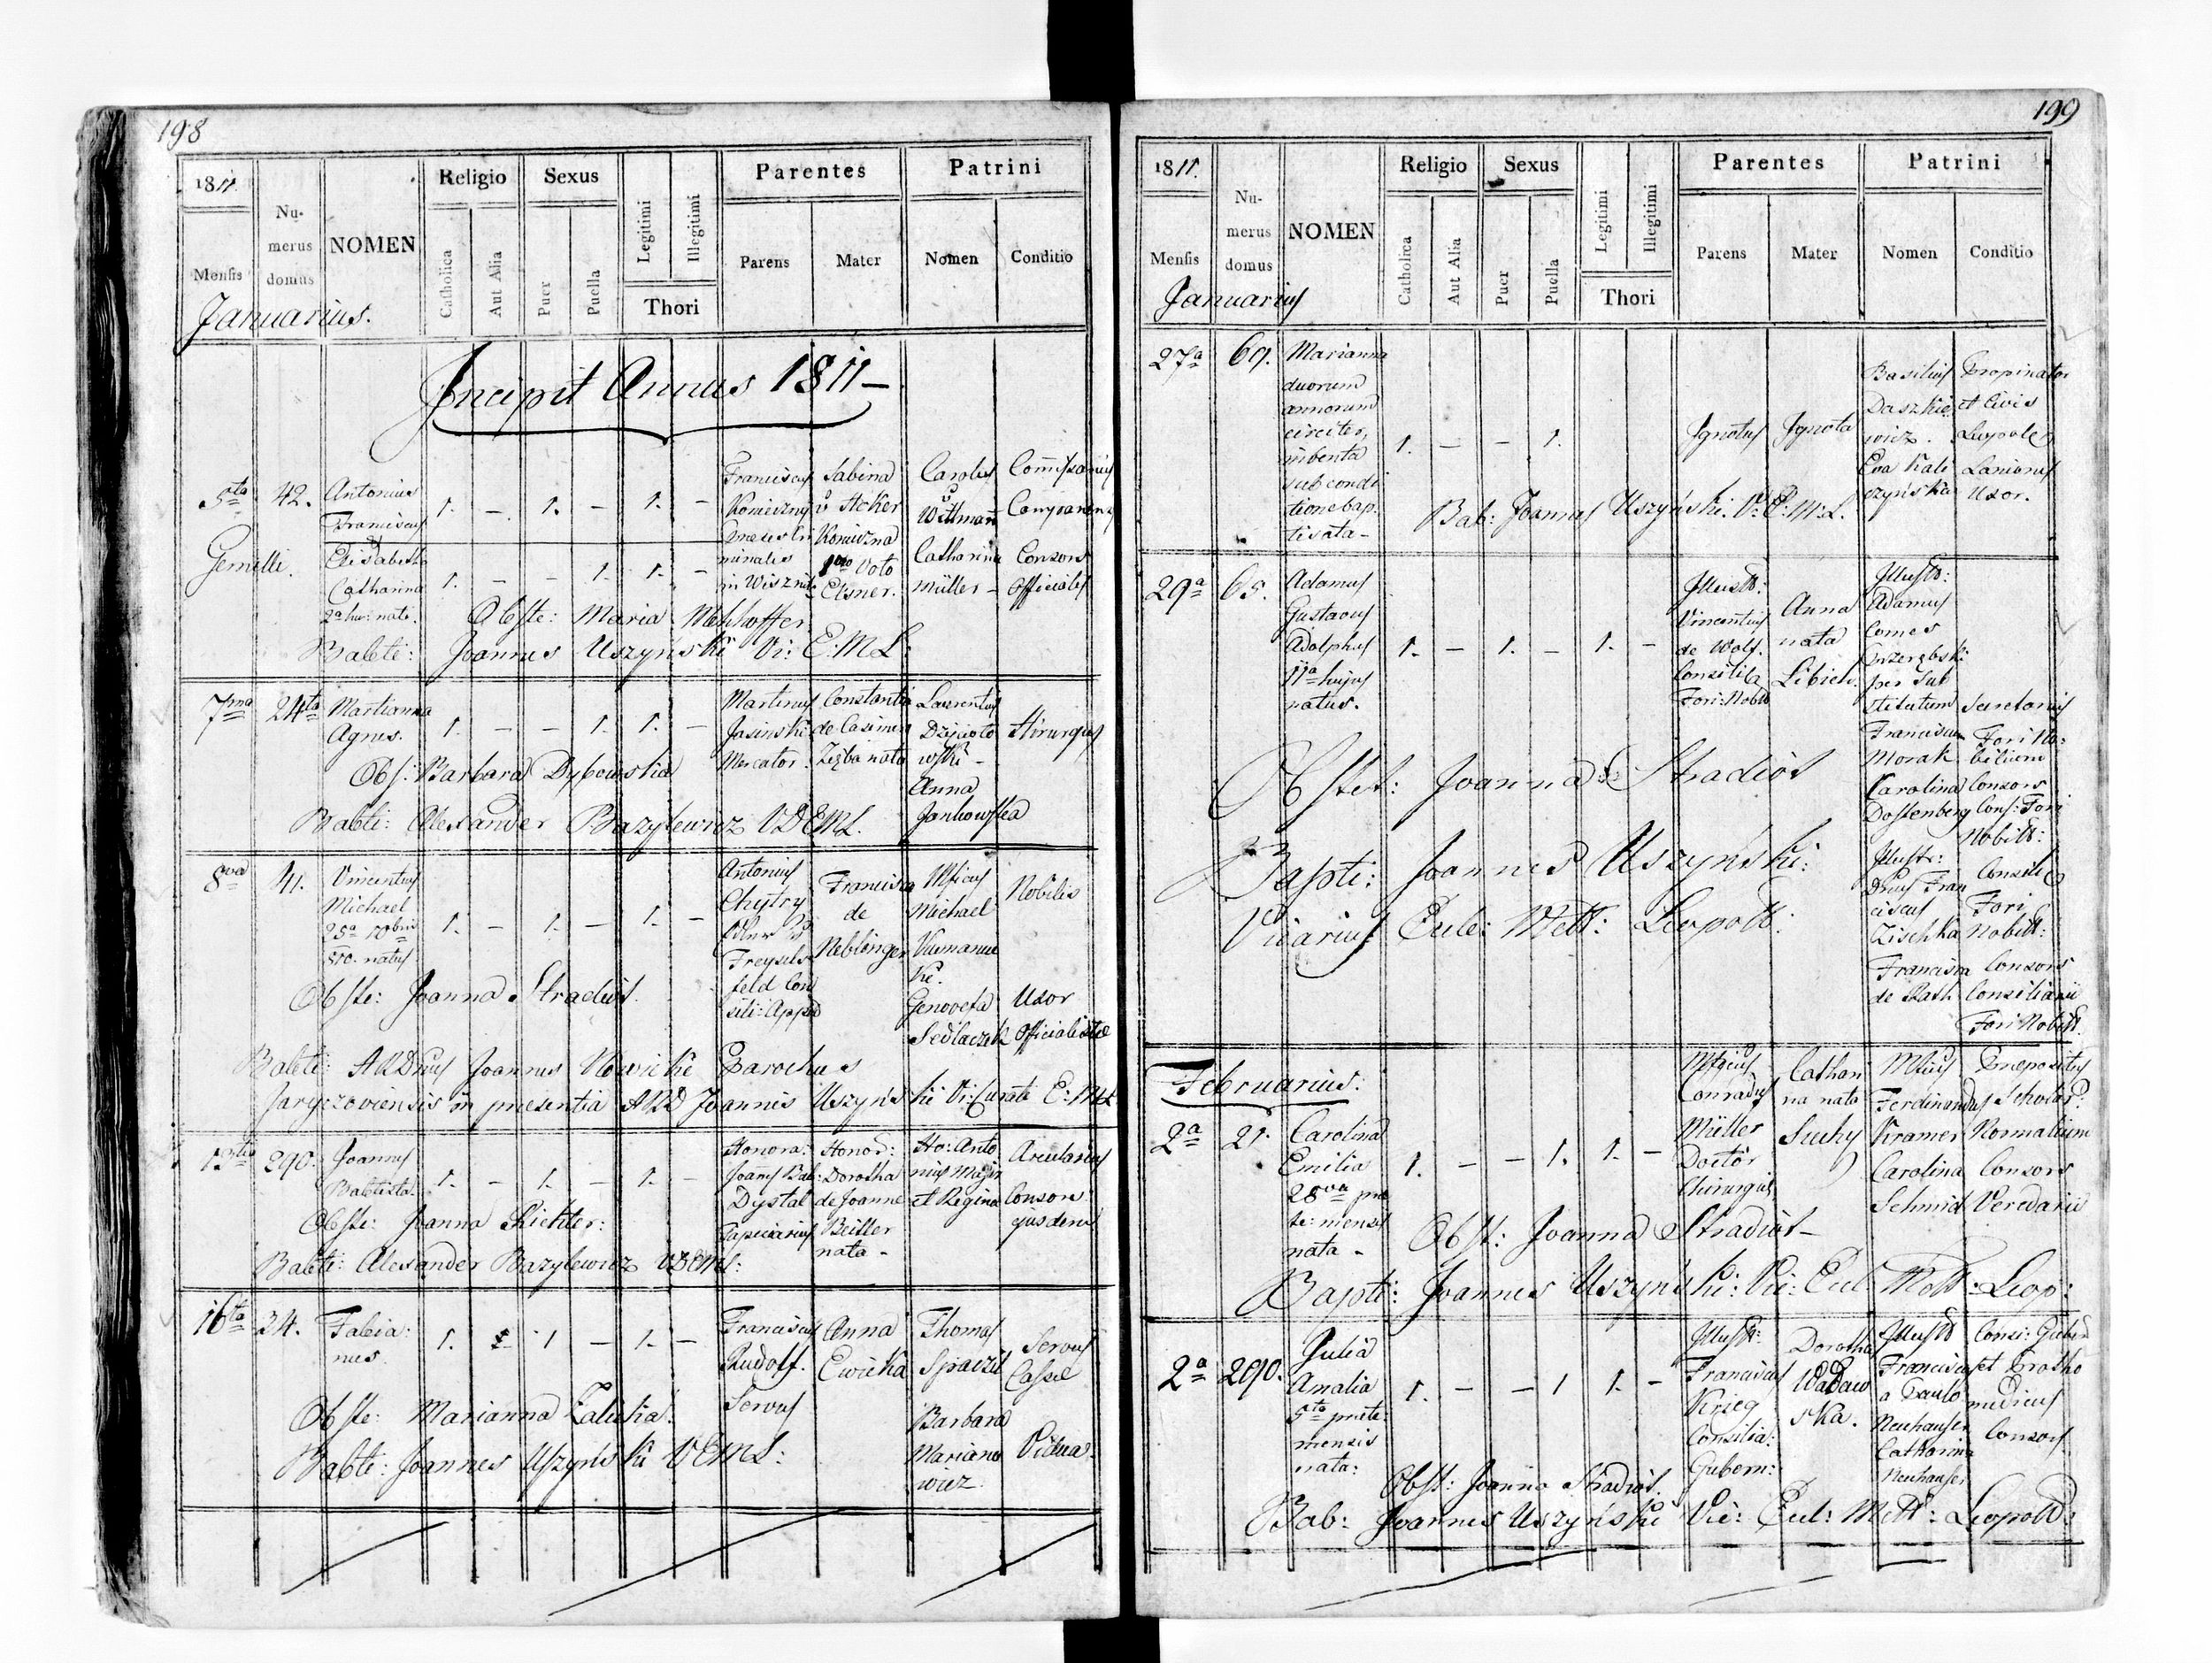 198
1811.
Mensis
Januarius.
Numerus domus
NOMEN
Religio
Catholica
Aut Alia
Sexus
Puer
Puella
Legitimi
Illegitimi
Thori
Parentes
Parens
Mater
Patrini
Nomen
Conditio
Incipit Annus 1811 –
5ta 42. Antonius
Franciscus
1. – 1. – 1. –
Gemelli.
Elisabetha
Catharina
2a hui: nati.
1. – – 1. 1. –
Franciscus
Konieczny
in Wisznic
Sabina
Konieczna
1mo Voto
Elsner.
Carolus
Wittmann
Catharina
Müller –
Consors
Officialis
Obste: Maria Mehlhoffer
Babti: Joannes Uszyński Vi: E:M:L:
7ma 24ta Marianna
Agnes.
1. – – 1. 1. –
Martinus
Jasinski
Mercator.
Constantia
de Casimiro
Zięba nata
Laurentius
Dzięcioło
wski –
Anna
Jankowska
Chirurgus
Obs: Barbara Dybowska
Babti: Alexander Bazylewicz VDEML.
8va 41. Vincentius
Michael
25a 10bris
810. natus
1. – 1. – 1. –
Antonius
Chytry
Freysels
feld Con
sili: Appel
Francisca
de
Neblinger
Mficus
Michael
Genovefa
Sedlaczek
Nobilis
Uxor
Officialistae
Obste: Joanna Stradiot.
Babti: ARDnus Joannes Nowicki Parochus
Jaryczoviensis in presentia ARD Joannis Uszyński Vi: Curati E: ML
13tia 290. Joannes
Babtista.
1. – 1. – 1. –
Honora:
Joann Bab:
Dystal
Tapiciarius
Honor:
Dorotha
de Joanne
Beitler
nata –
Ho: Anto
nius Majer
et Regina
Arcularius
Consors
ejusdem
Obste: Joanna Richter:
Babti: Alexander Bazylewicz VDEML:
16ta 34. Fabia:
nus.
1. – 1 – 1. –
Franciscus
Rudolf.
Servus
Anna
Ewicka
Thomas
Spaczil
Barbara
Mariano
wicz
Servus
Cassae
Vidua.
Obste: Marianna Zaluska:
Babti: Joannes Uszyński VEML:
199
1811.
Mensis
Januarius
Numerus domus
NOMEN
Religio
Catholica
Aut Alia
Sexus
Puer
Puella
Legitimi
Illegitimi
Thori
Parentes
Parens
Mater
Patrini
Nomen
Conditio
27a 69. Marianna
duorum
annorum
circiter,
inventa
sub condi
tione bap
tisata –
1. – – 1.
Ignotus Ignota
Basilius
Daszkie
wicz.
Eva Kali
czyńska
Propinator
et Civis
Leopole
Lanionis
Uxor.
Bab: Joannes Uszyński. V: E: M: L.
29a 65. Adamus
Gustavus
Adolphus
11a hujus
natus.
1. – 1. – 1. –
Illustr:
Vincentius
de Wolf.
Consilia
Fori: Nobil
Anna
nata
Libich.
Illustr:
Adamus
Comes
per Sub
stitutum
Franciscum
Morak
Carolina
Dostenberg
Illustr:
Dnus Fran
ciscus
Zischka
Francisca
de Rath
Secretarius
Fori No:
bilium
Consors
Cons: Fori
Nobil:
Consil
Fori
Nobil:
Consors
Consiliarii
Fori Nobil.
Obstet: Joanna Stradiot
Bapti: Joannes Uszyński:
Vicarius Eccle: Mett: Leopoll:
Februarius:
2a 21. Carolina
Emilia
28va pre
te: mensis
nata –
1. – – 1. 1. –
Mficus
Conradus
Müller
Doctor
Chirurgiae
Cathari
na nata
Suchy
Mficus
Ferdinandus
Kramer
Carolina
Schmid
Praepositus
Scholar:
Normalium
Consors
Veredarii
Obst: Joanna Stradiot –
Bapti: Joannes Uszyński: Vic: Eccl: Mett: Leop:
2a 290. Julia
Amalia
5ta prete:
mensis
nata:
1. – – 1 1. –
Illustr:
Franciscus
Krieg
Consilia:
Gubern:
Dorothea
Wadaw
ska.
Illustr
Franciscus
a Paulo
Neuhauser
Catharina
Neuhauser
Consi: Gubern
et Protho
medicus
Consors
Obst: Joanna Stradiot.
Bab: Joannes Uszyński Vic: Eccl: Mett: Leopold: